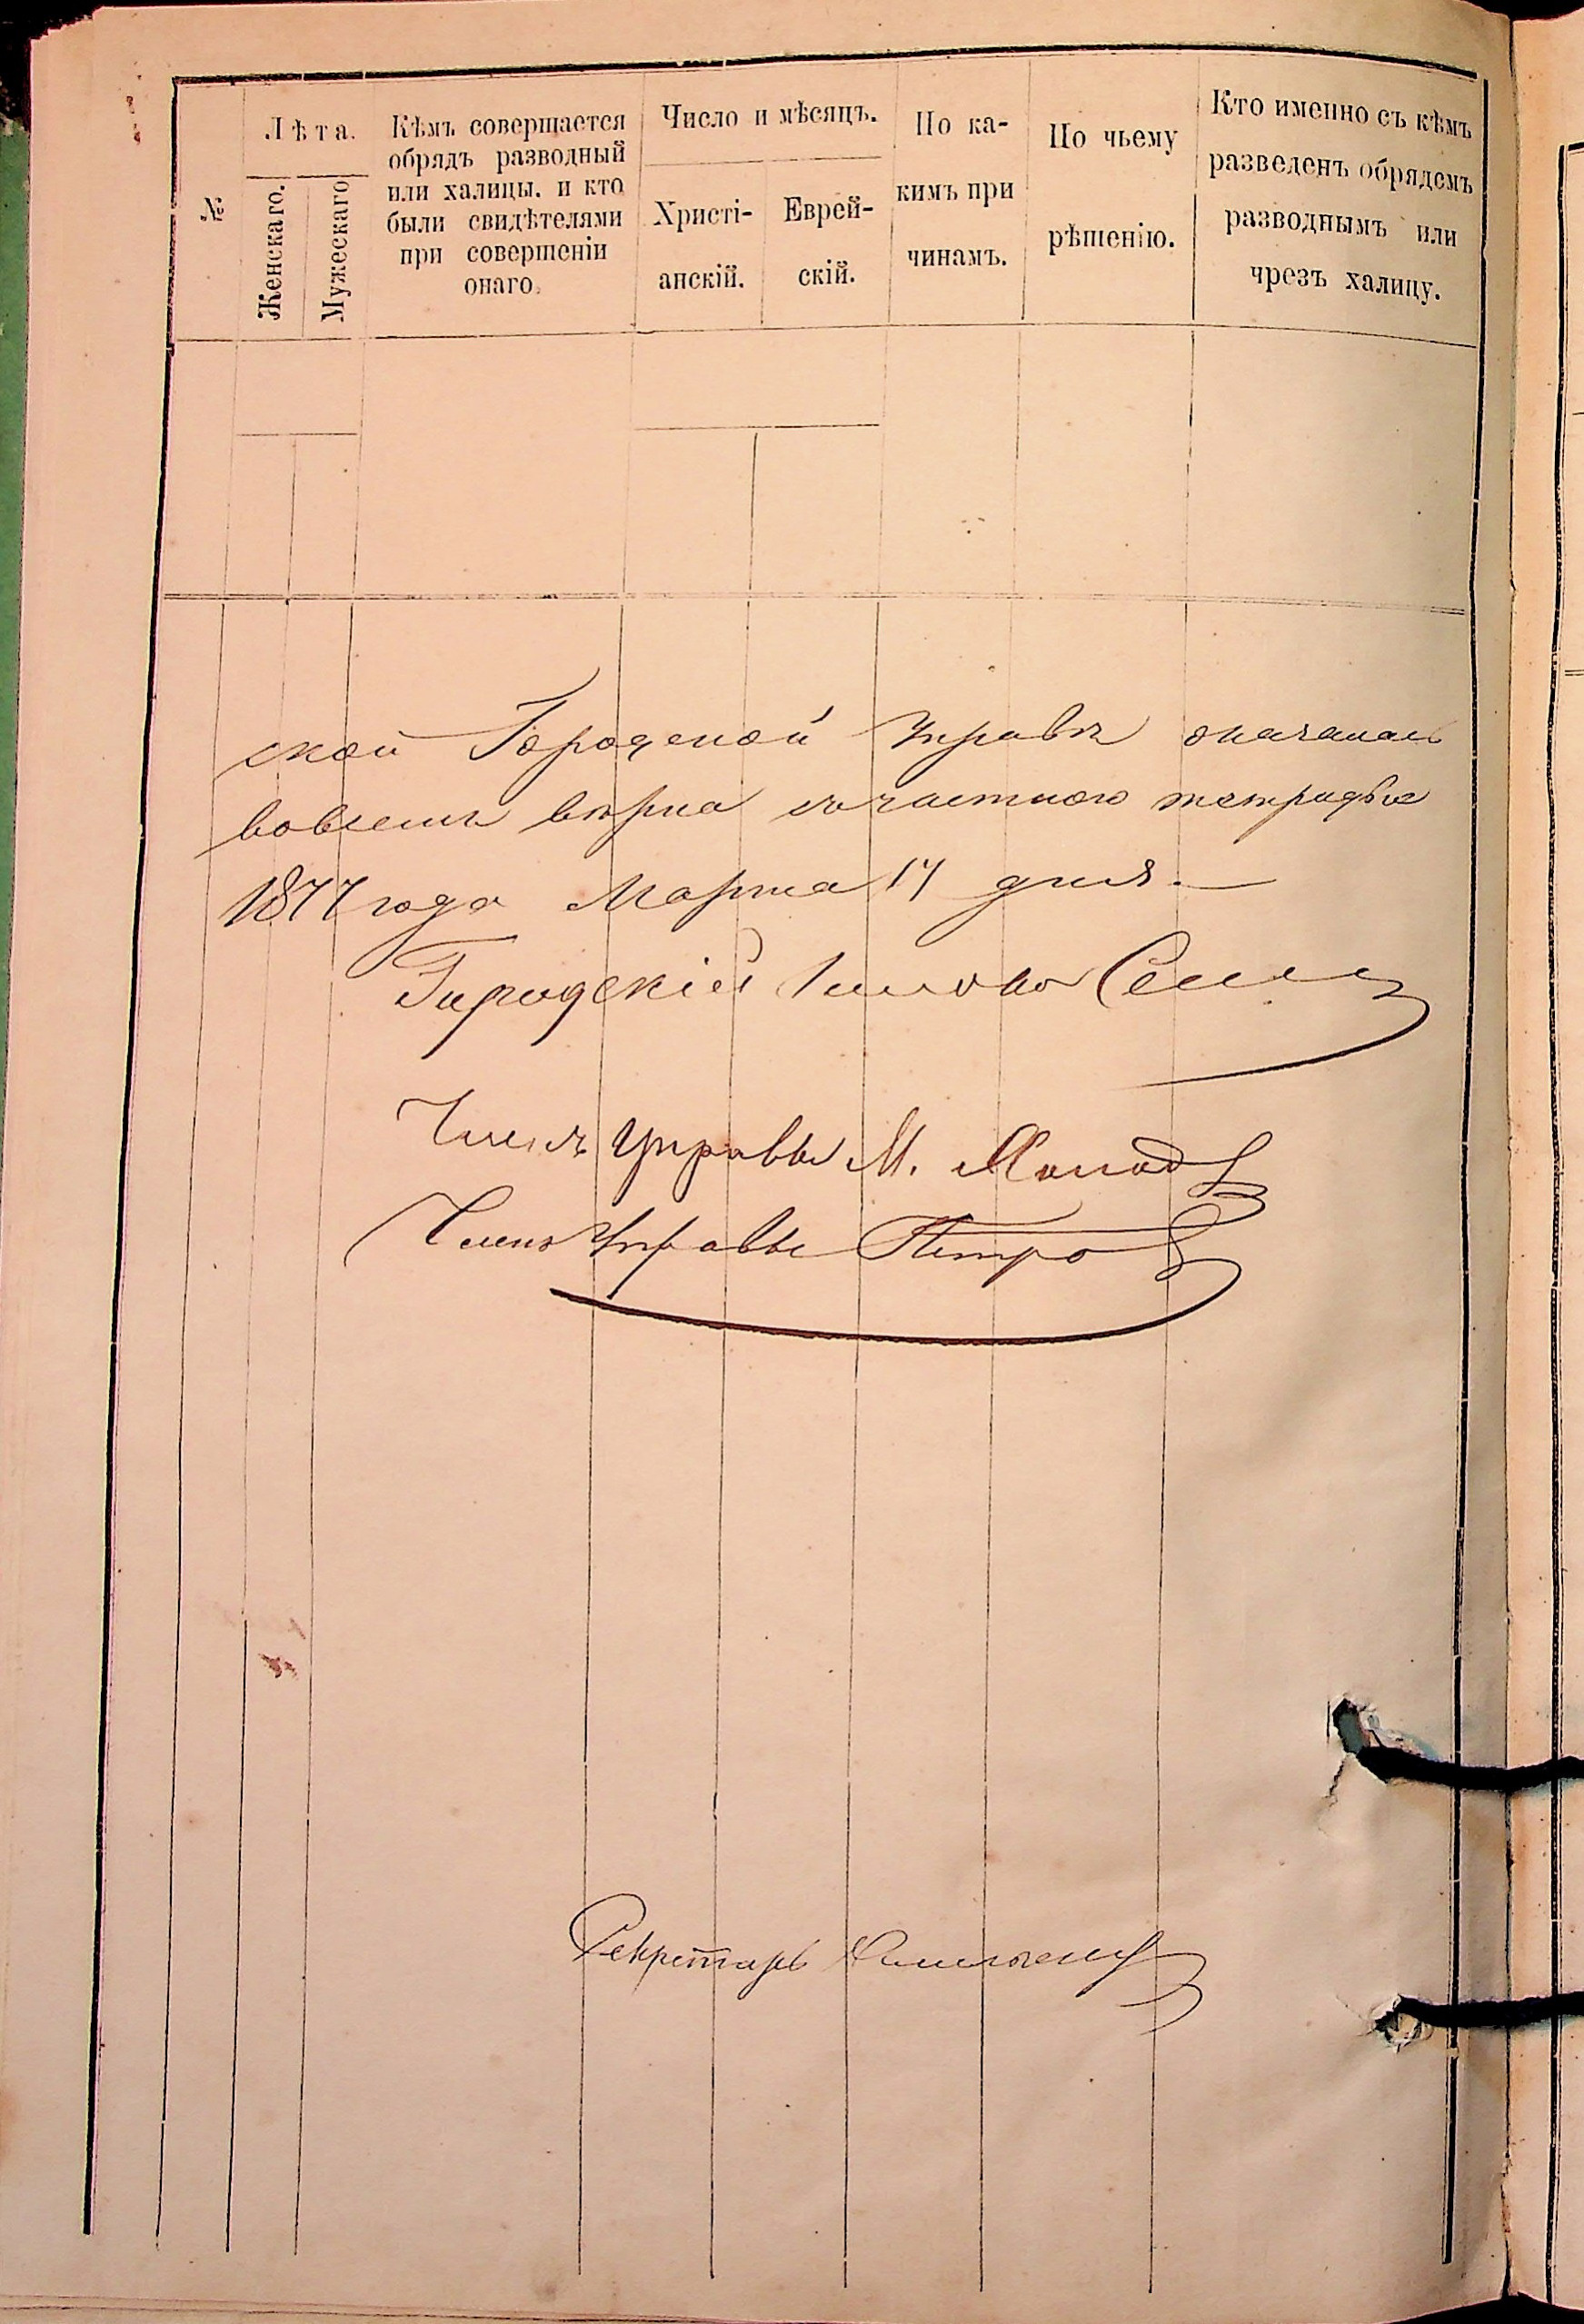 №
Лѣта.
Женскаго.
Мужескаго
Кѣмъ совершается
обрядъ разводный
или халицы. и кто
были свидѣтелями
при совершеніи
онаго.
Число и мѣсяцъ.
Христі-
анскій.
Еврей-
скій.
По ка-
кимъ при
чинамъ.
По чьему
рѣшенію.
Кто именно съ кѣмъ
разведенъ обрядомъ
разводнымъ или
чрезъ халицу.
ской Городской Управѣ оказалась
вовсемъ вѣрна съчастною тетрадью
1877 года Марта 17 дня.
Городскій Голова
Членъ Управы М.
Членъ Управы Петров
Секретарь